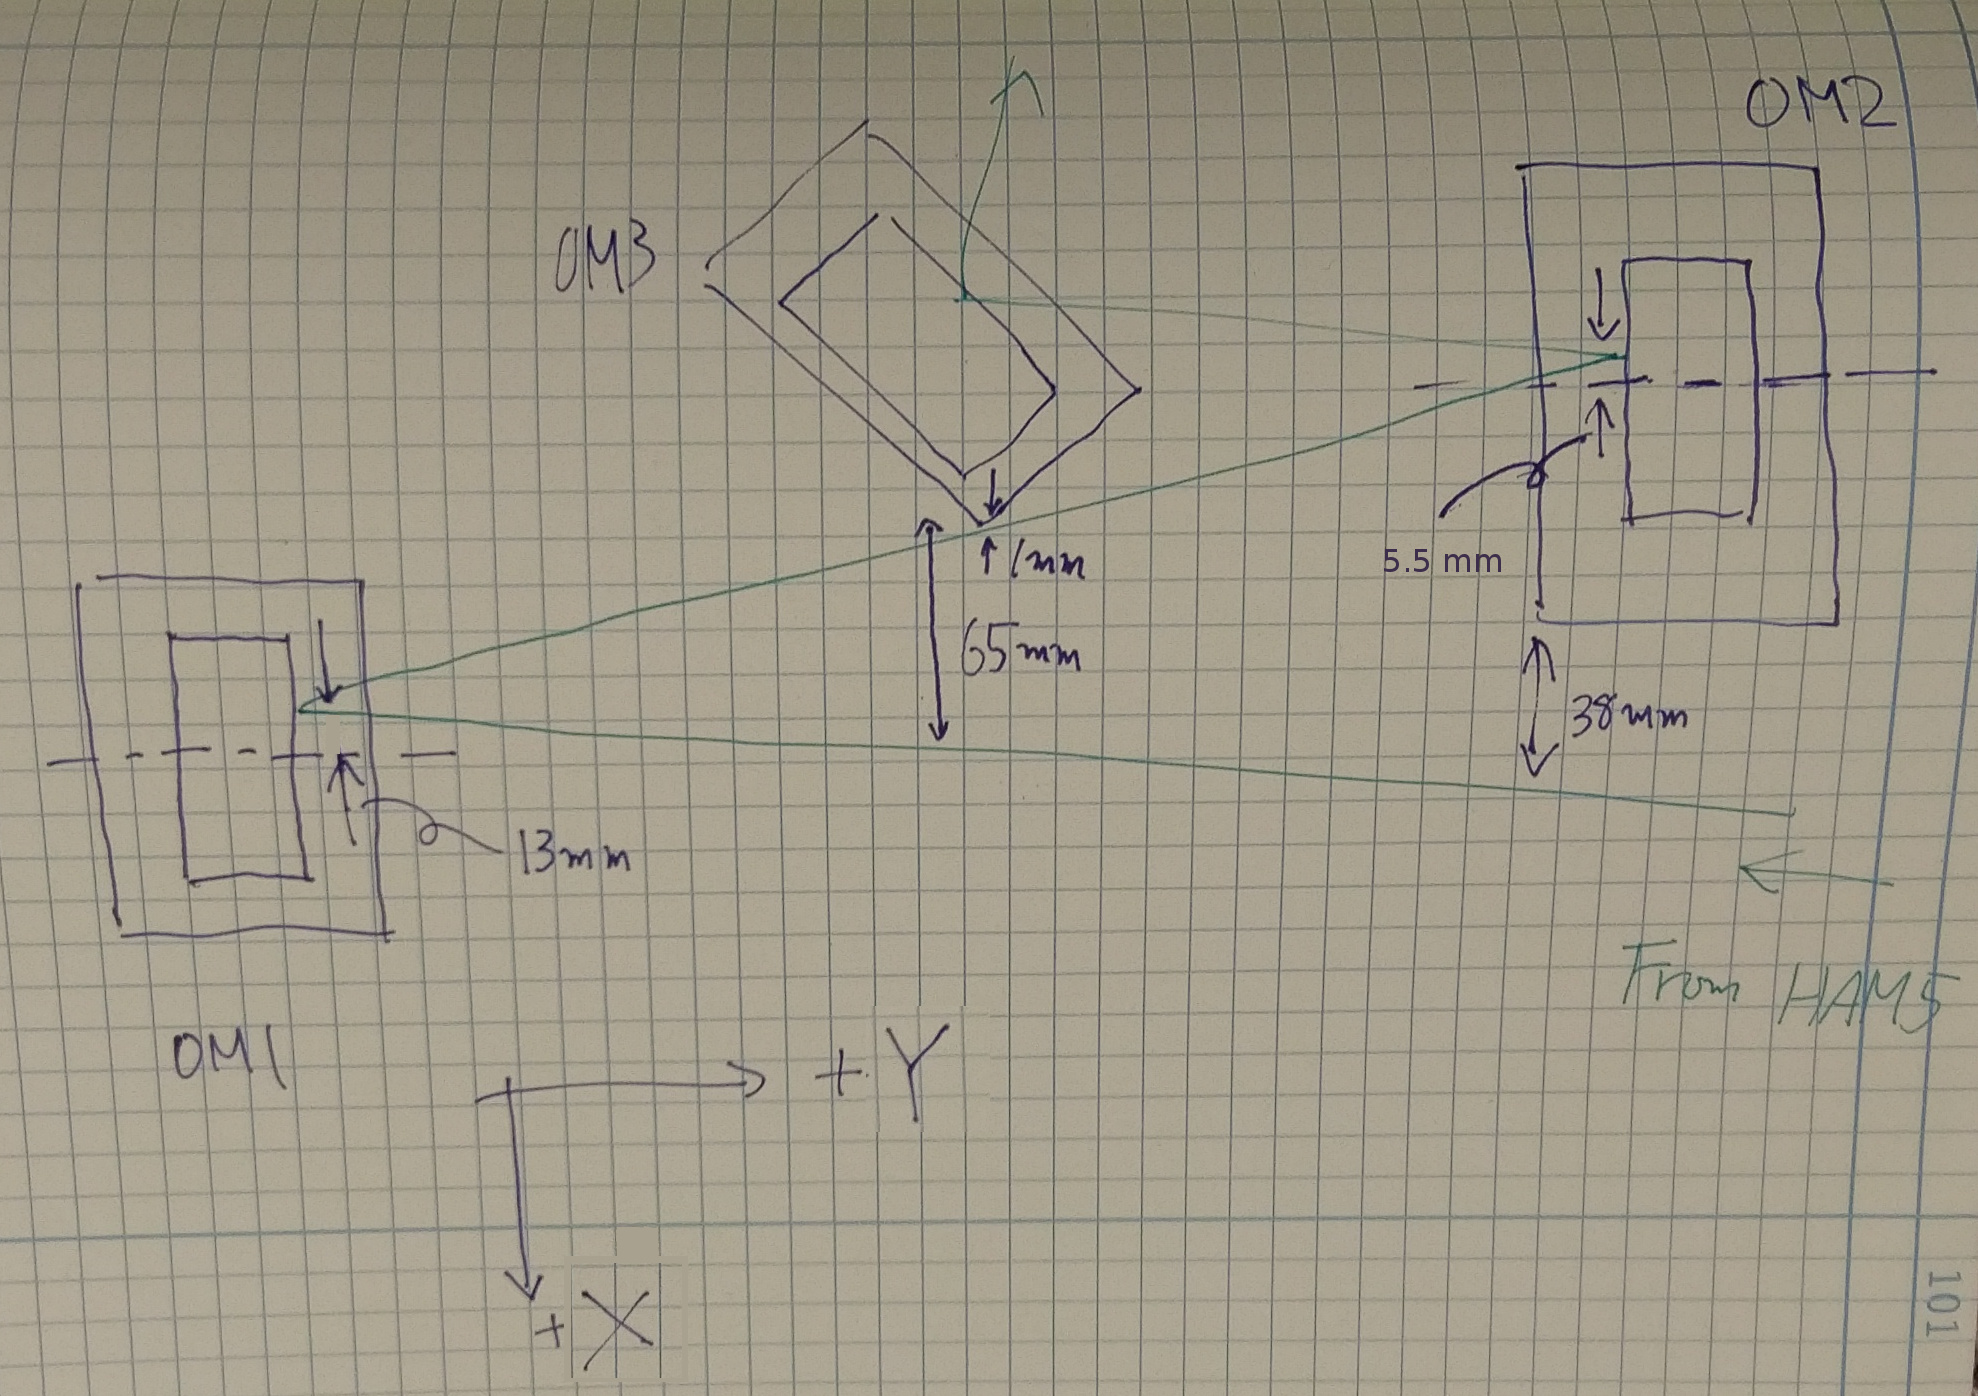 OM2
OM3
1mm
5.5 mm
65mm
38mm
13mm
From HAM5
OM1
+Y
+X
101